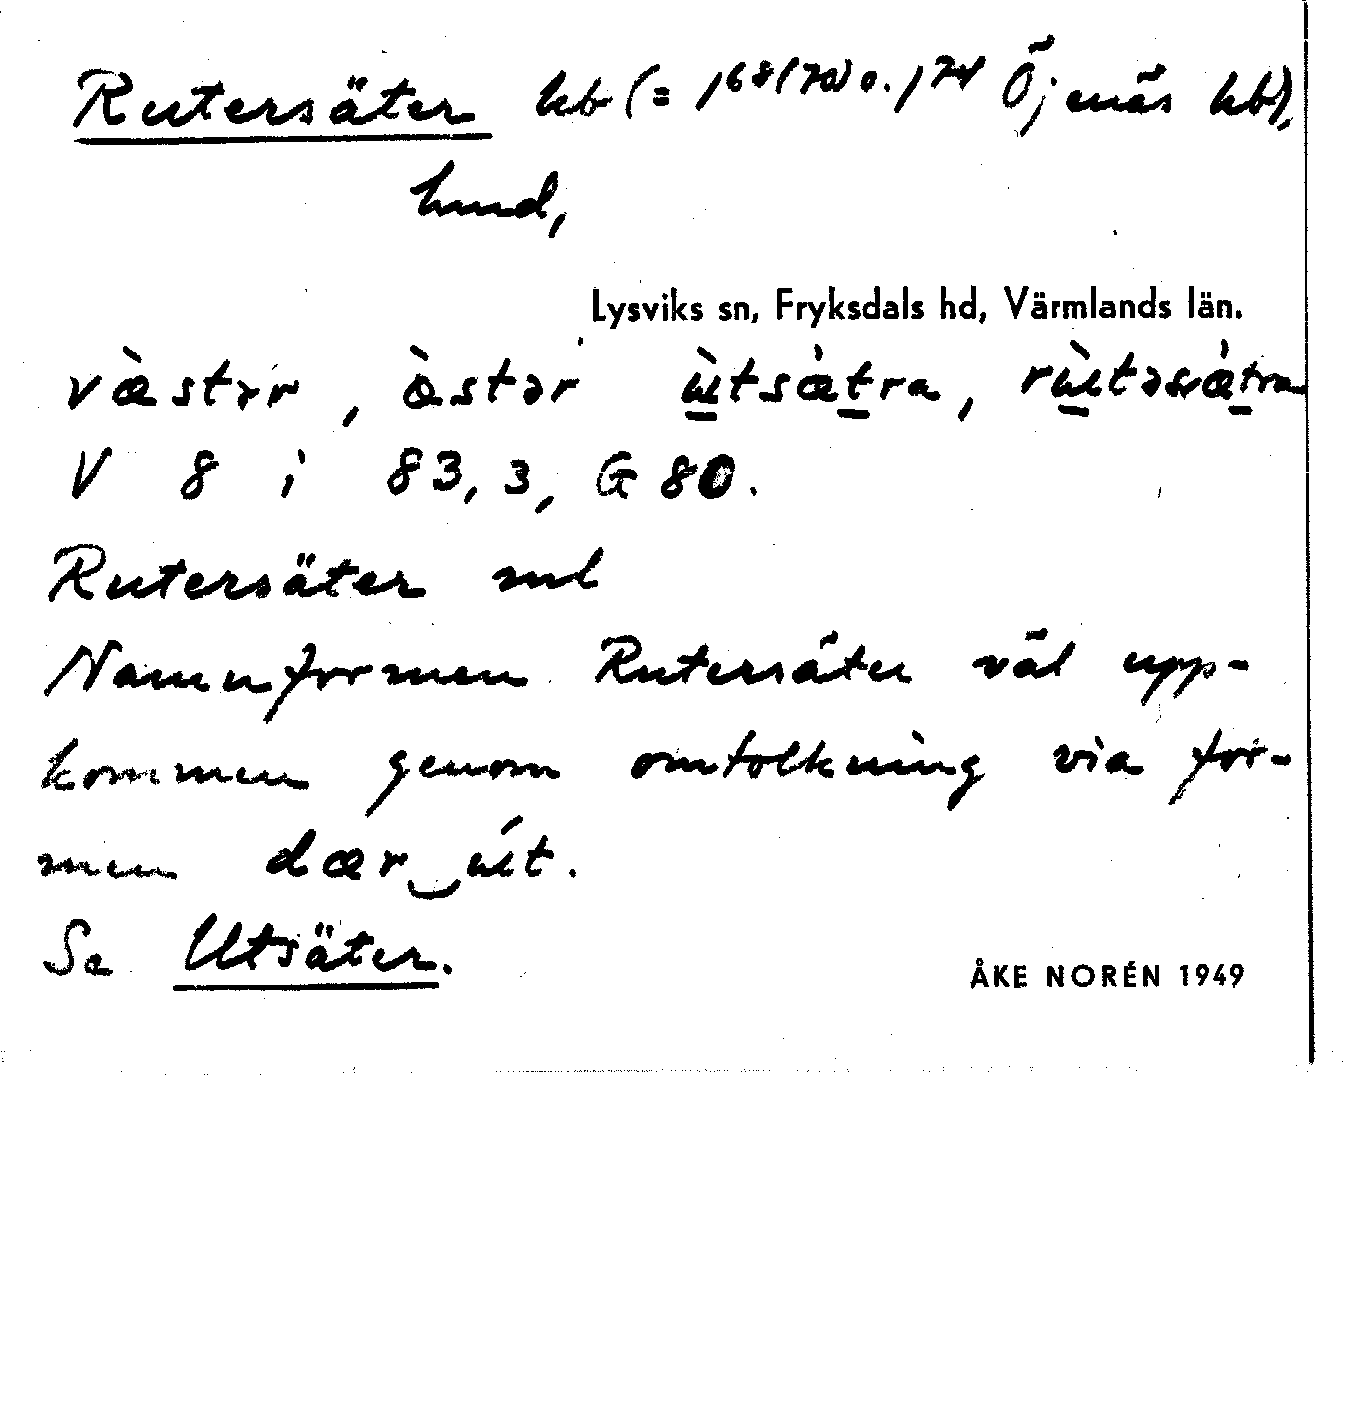 Rutersäter hb (= 1⁶⁸⁽⁷⁰⁾ o. 1⁷⁴ Öjenäs hb),
hmd,
Lysviks sn, Fryksdals hd, Värmlands län.
væ̀stər, ə̀stər ùtsæ̀tra, rùtəsæ̀tra
V 8 i 83, 3, G 80.
Rutersäter
Namnformen Rutersäter väl upp-
kommen genom omtolkning via for-
men dær‿út.
Se Utsäter.
ÅKE NORÉN 1949